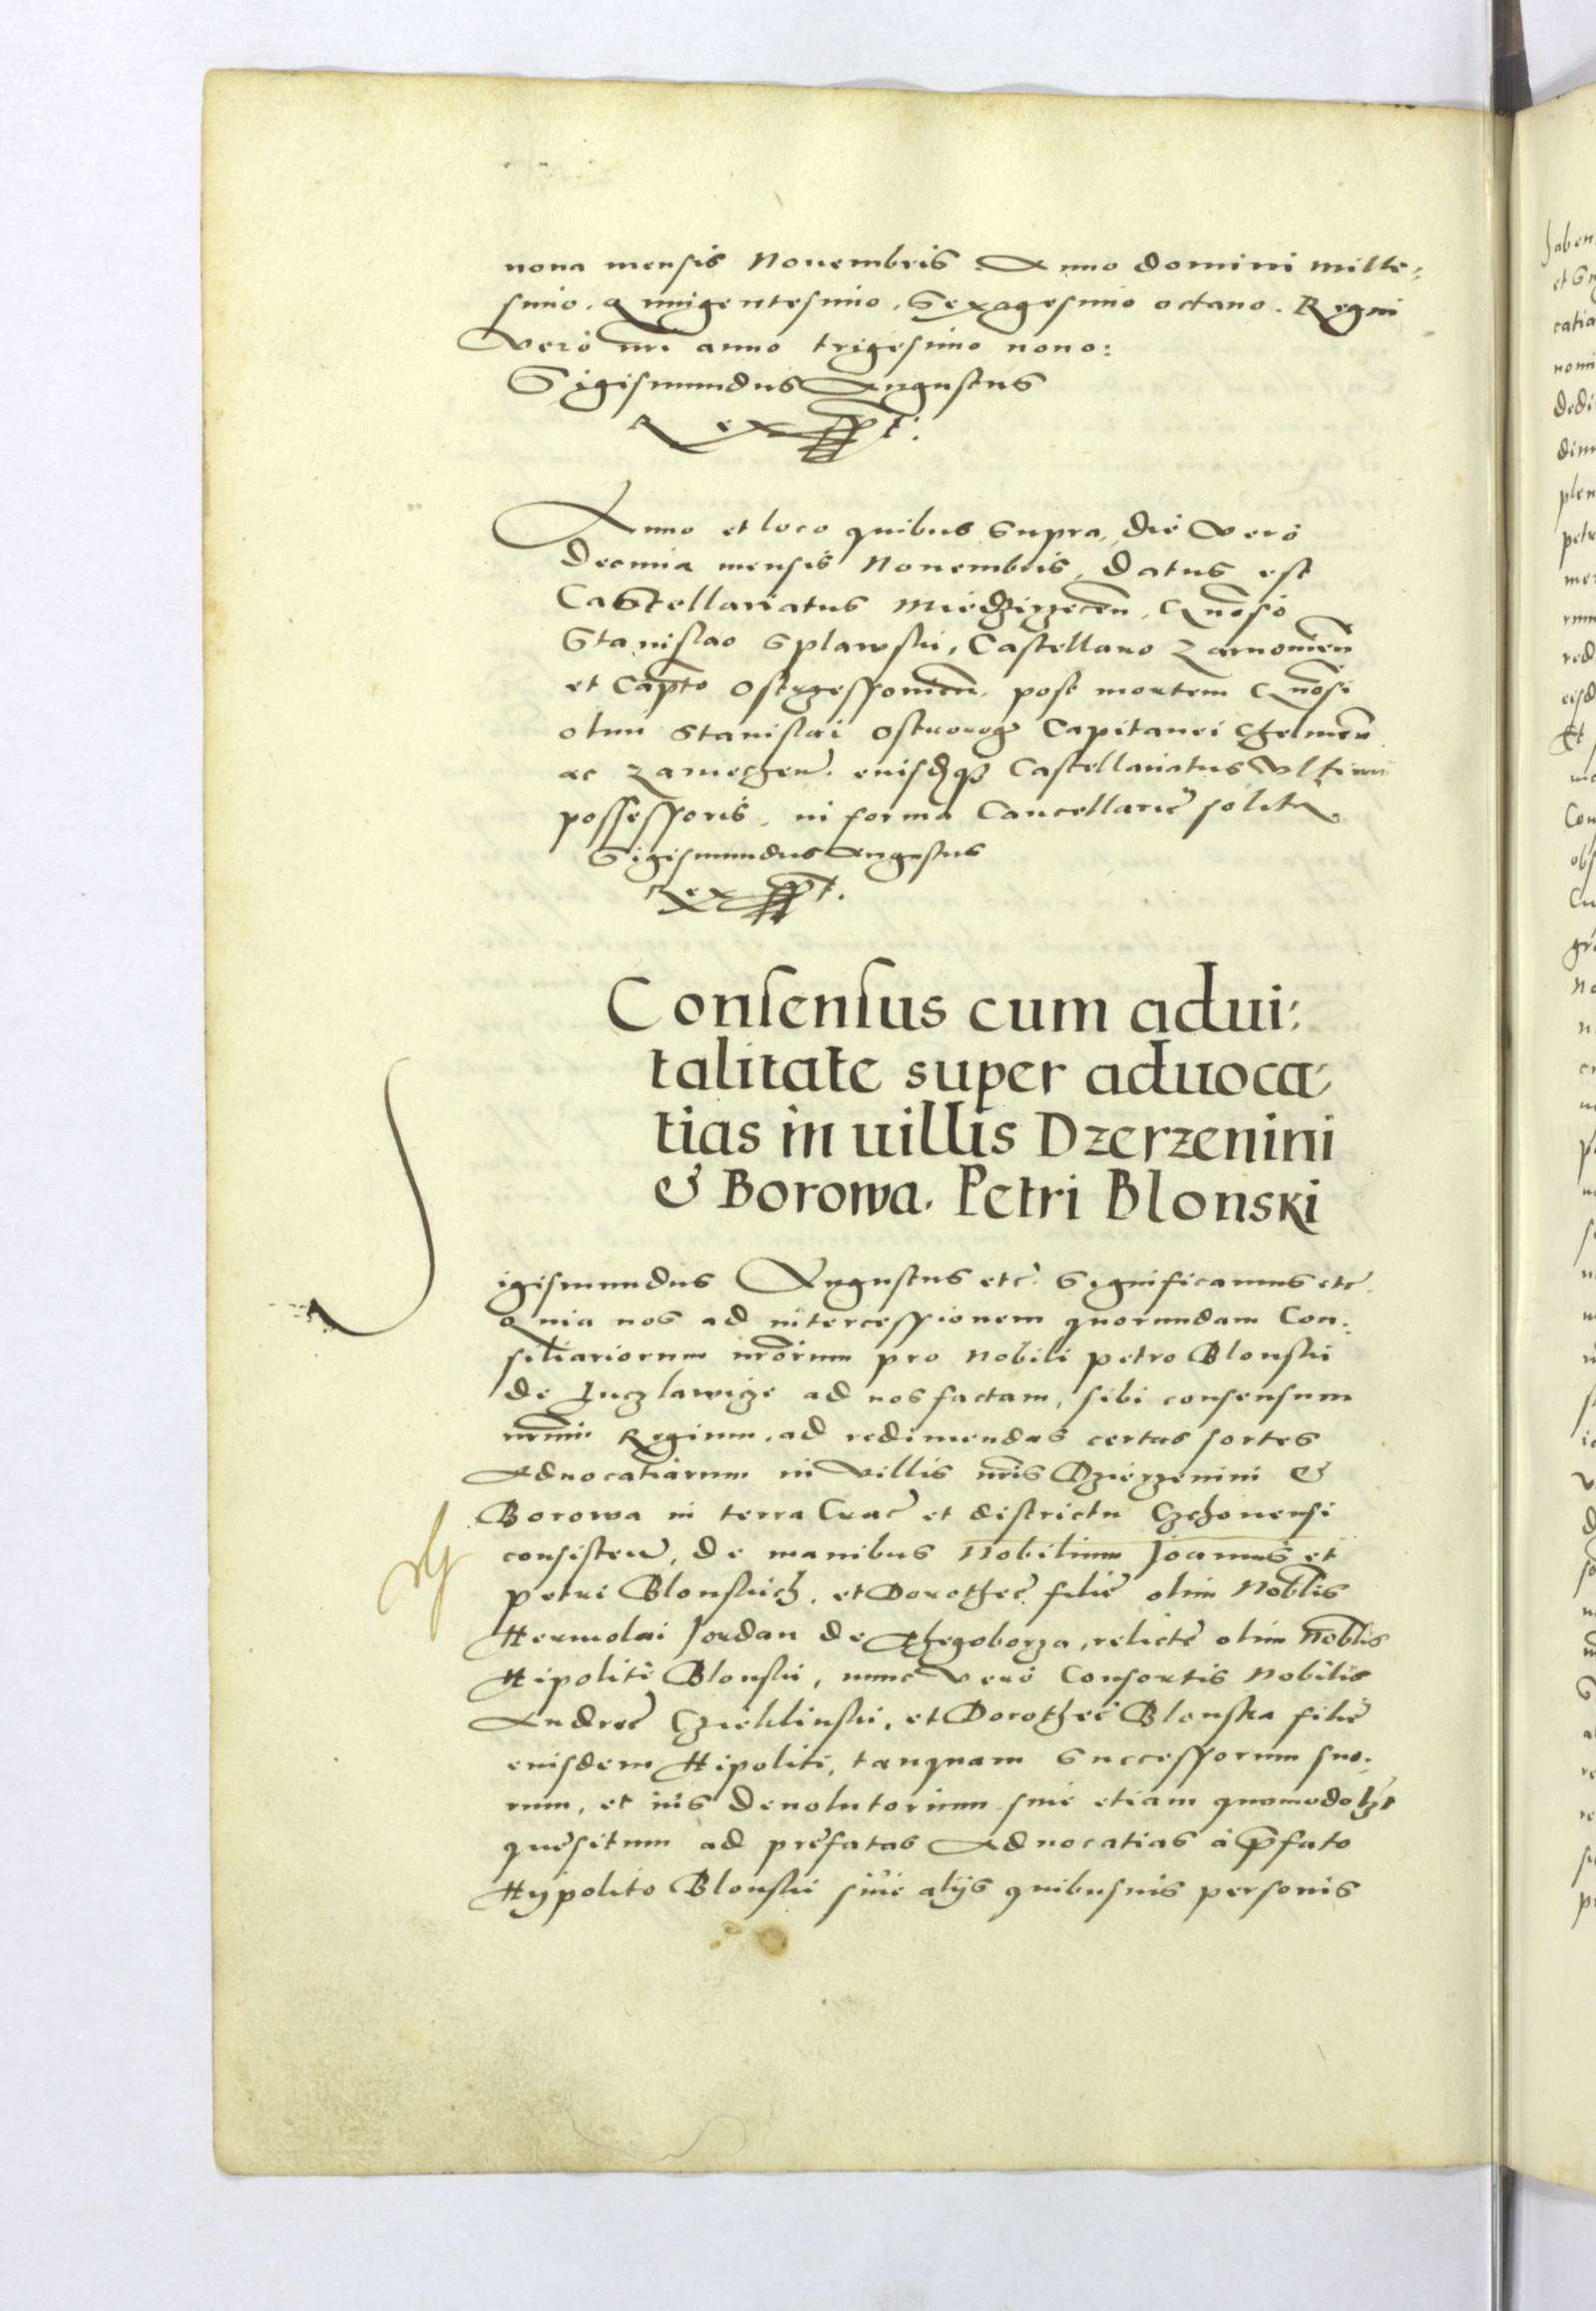 nona mensis Nouembris Anno domini mille:
simo. Quingentesimo. Sexagesimo octauo. Regni
Verò nri anno trigesimo nono:
Sigismundus Augustus
Rex sspt.
Anno et loco quibus supra, die Verò
decima mensis Nouembris, datus est
Castellanatus Miedzirzecen. Gnoso
Stanislao Splawski, Castellano Zarnouien
et Capto Ostrzessouien. post mortem Gnosi
olim Stanislai Ostrorog Capitanei Chelmen
ac Zamechen. eiusdqz Castellanatus Vltimi
possessoris, in forma Cancellarie solita
Sigismundus Augustus
Rex sspt.
Consensus cum adui:
talitate super aduoca:
tias in uillis Dzerzenini
& Borowa. Petri Blonski
Sigismundus Augustus etc. Significamus etc.
Quia nos ad intercessionem quorundam Con:
siliariorum nrorum pro Nobili Petro Blonski
de ad nos factam, sibi consensum
nrum Regium. ad redimendas certas sortes
Aduocatiarum in Villis nris Dzierzenini &
Borowa in terra Crac et districtu Czchouensi
consisten, de manibus Nobilium Joannis et
Petri Blonskich. et Dorothee filie olim Noblis
Hermolai Jordan de relicte olim Noblis
Hipoliti Blonski, nunc Verò Consortis Nobilis
Andree Czieklinski, et Dorothee Blonska filie
eiusdem Hipoliti, tanquam Successorum suo:
rum, et ius deuolutorium siue etiam quomodolzt
quesitum ad prefatas Aduocatias à pfato
Hypolito Blonski siue alijs quibusuis personis